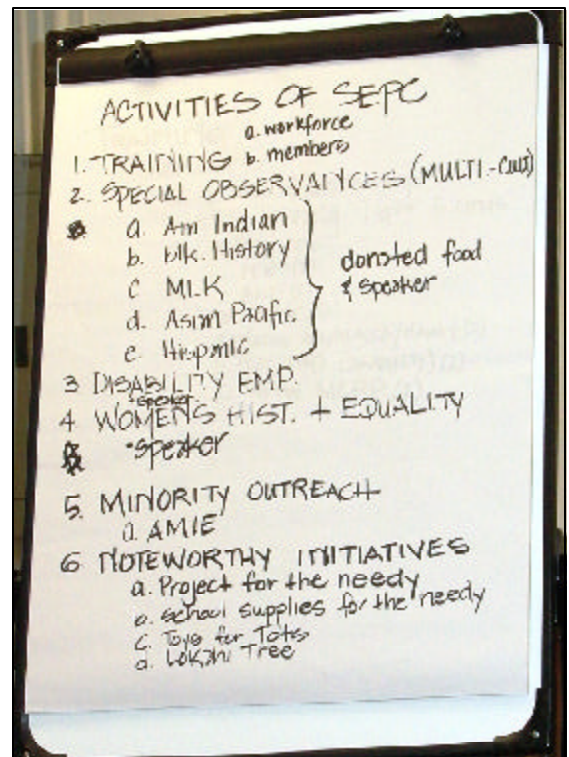 ACTIVITIES OF SEPC
a. workforce
1. TRAINING b. members
2. SPECIAL OBSERVANCES (MULTI-CULT)
a. Am Indian
b. blk. History
c MLK
d. Asian Pacific
e. Hispanic
donated food
& speaker
3 DISABILITY EMP.
• speaker
4 WOMENS HIST. + EQUALITY
• speaker
5. MINORITY OUTREACH
a. AMIE
6 NOTEWORTHY INITIATIVES
a. Project for the needy
b. School supplies for the needy
c. Toys for Tots
d. Lokahi Tree